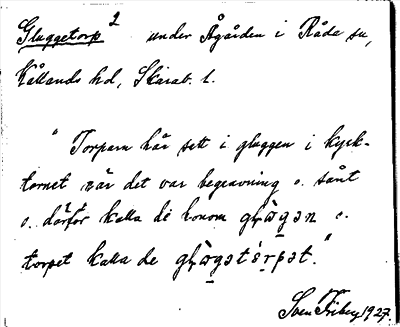 Gluggetorp² under Ågården i Råda sn,
Kållands hd, Skarab. l.
"Torparn har sett i gluggen i kyrk-
tornet när det var begravning o. sånt
o. därför kalla dé honom
torpet kalla de
Sven Friberg 1927.